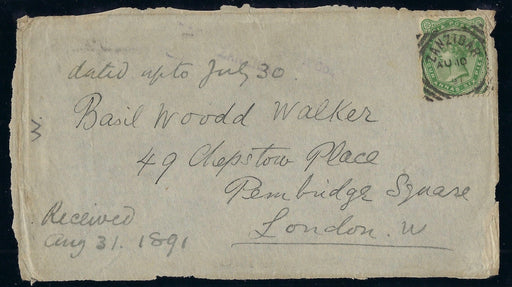 ZANZIBAR
AU 10
dated up to July 30.
Basil Woodd Walker
49 Chepstow Place
Pembridge Square
London. W
W.
Received
Aug 31. 1891